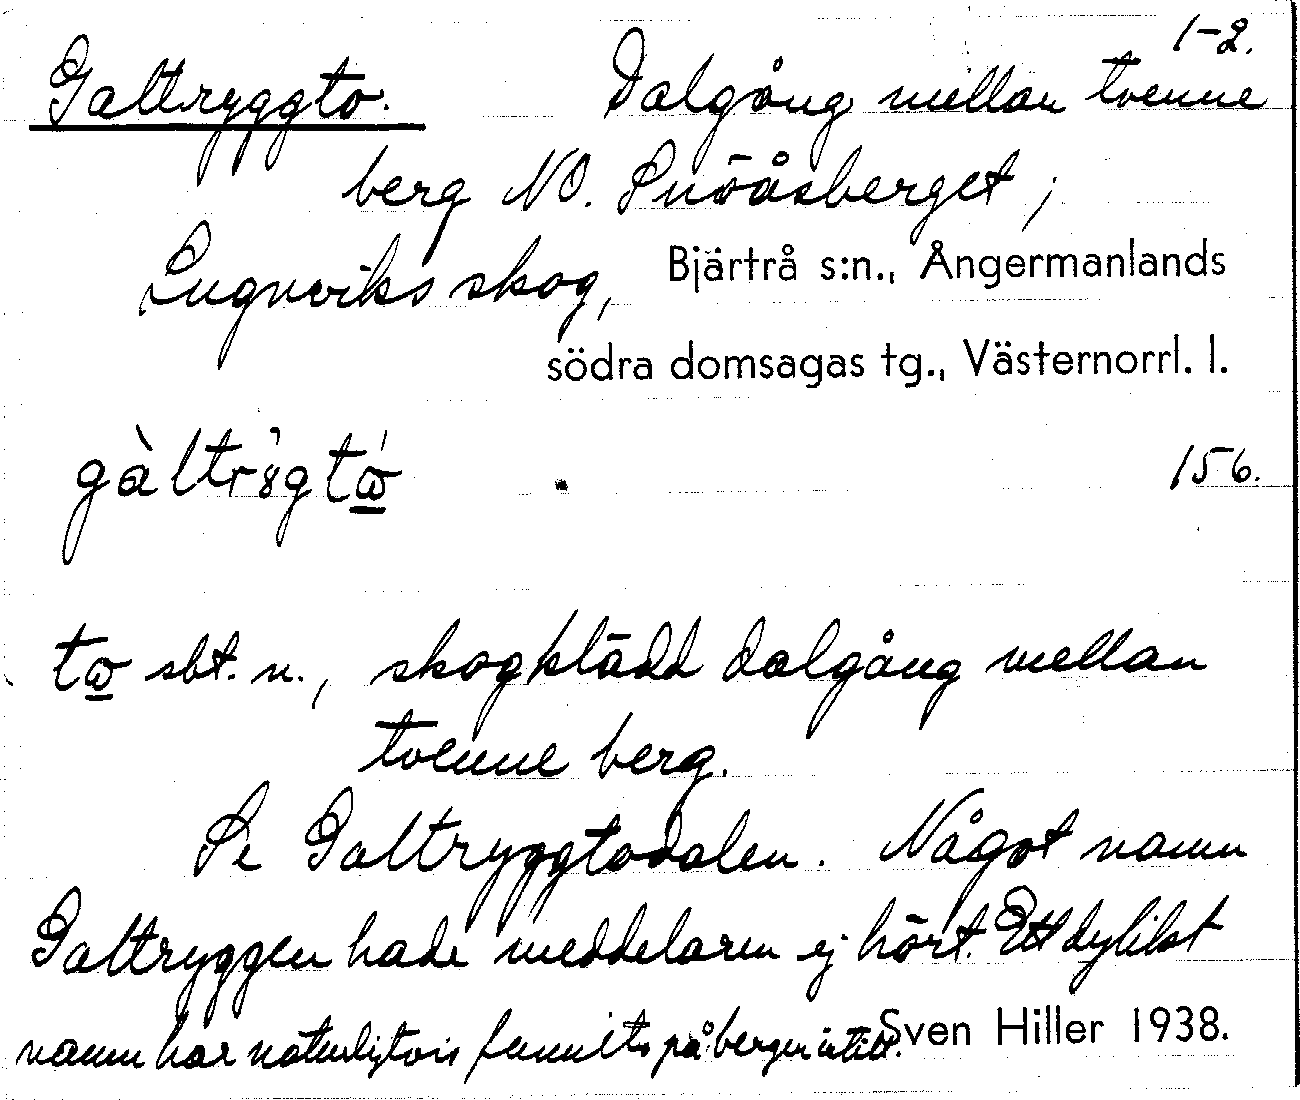 1-2.
Galtryggto. Dalgång mellan tvenne
berg NO. Snöåsberget,
Lugnviks skog, Bjärtrå s:n., Ångermanlands
södra domsagas tg., Västernorrl. l.
156.
sbt. n., skogklädd dalgång mellan
tvenne berg.
Se Galtryggtodalen. Något namn
Galtryggen hade meddelaren ej hört. Ett dylikt
namn har naturligtvis funnits på bergen intill.
Sven Hiller 1938.